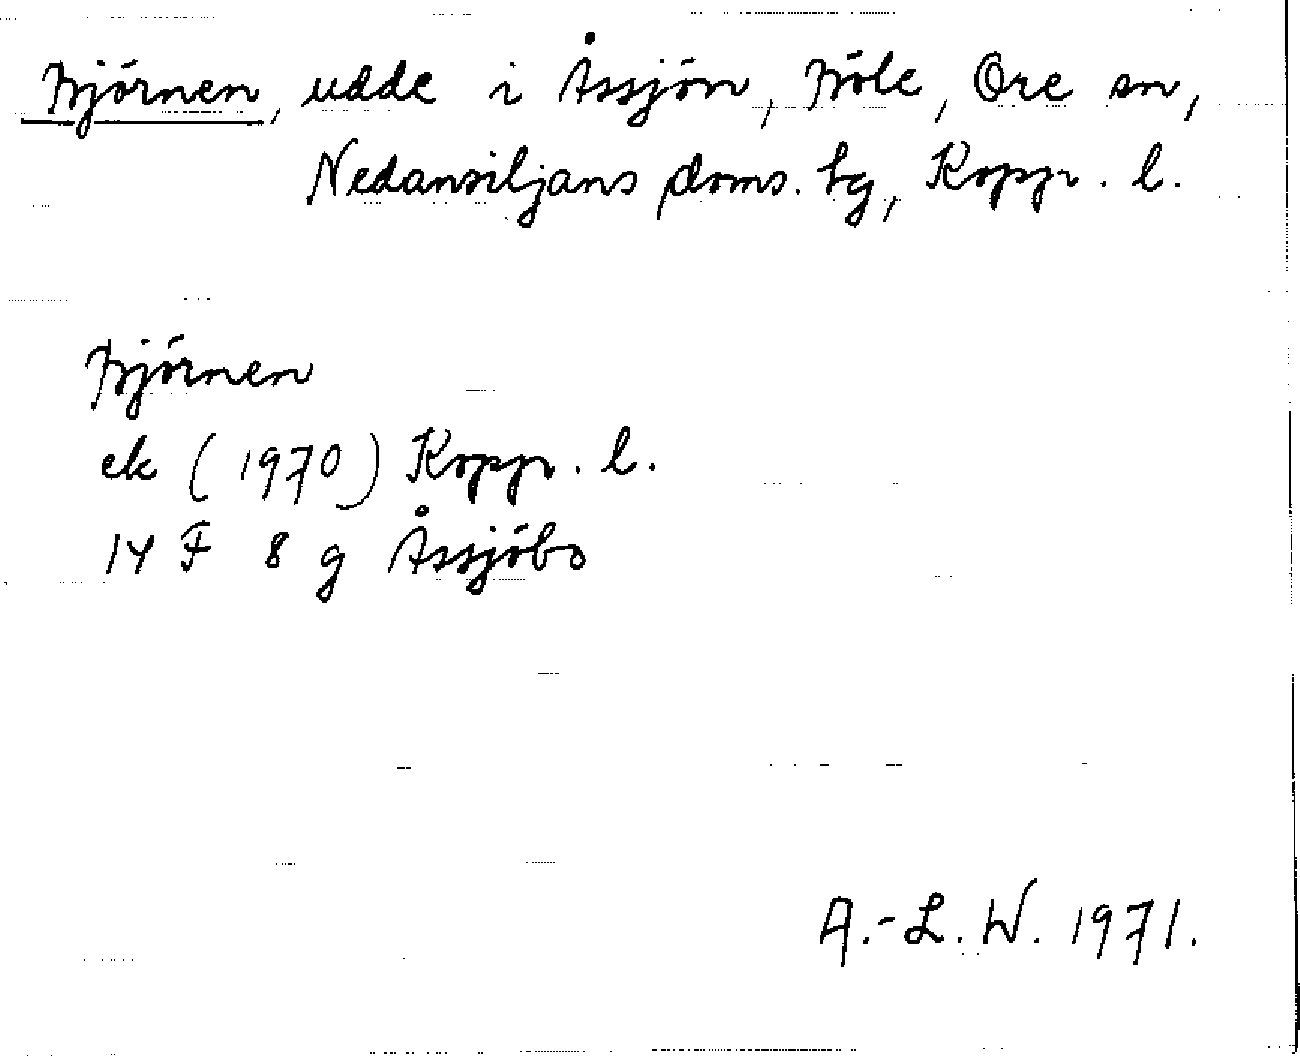 Björnen, udde i Åssjön, Böle, Ore sn,
Nedansiljans doms. tg, Koppr. l.
Björnen
ek (1970) Koppr. l.
14 F 8 g Åssjöbo
A.-L. W. 1971.